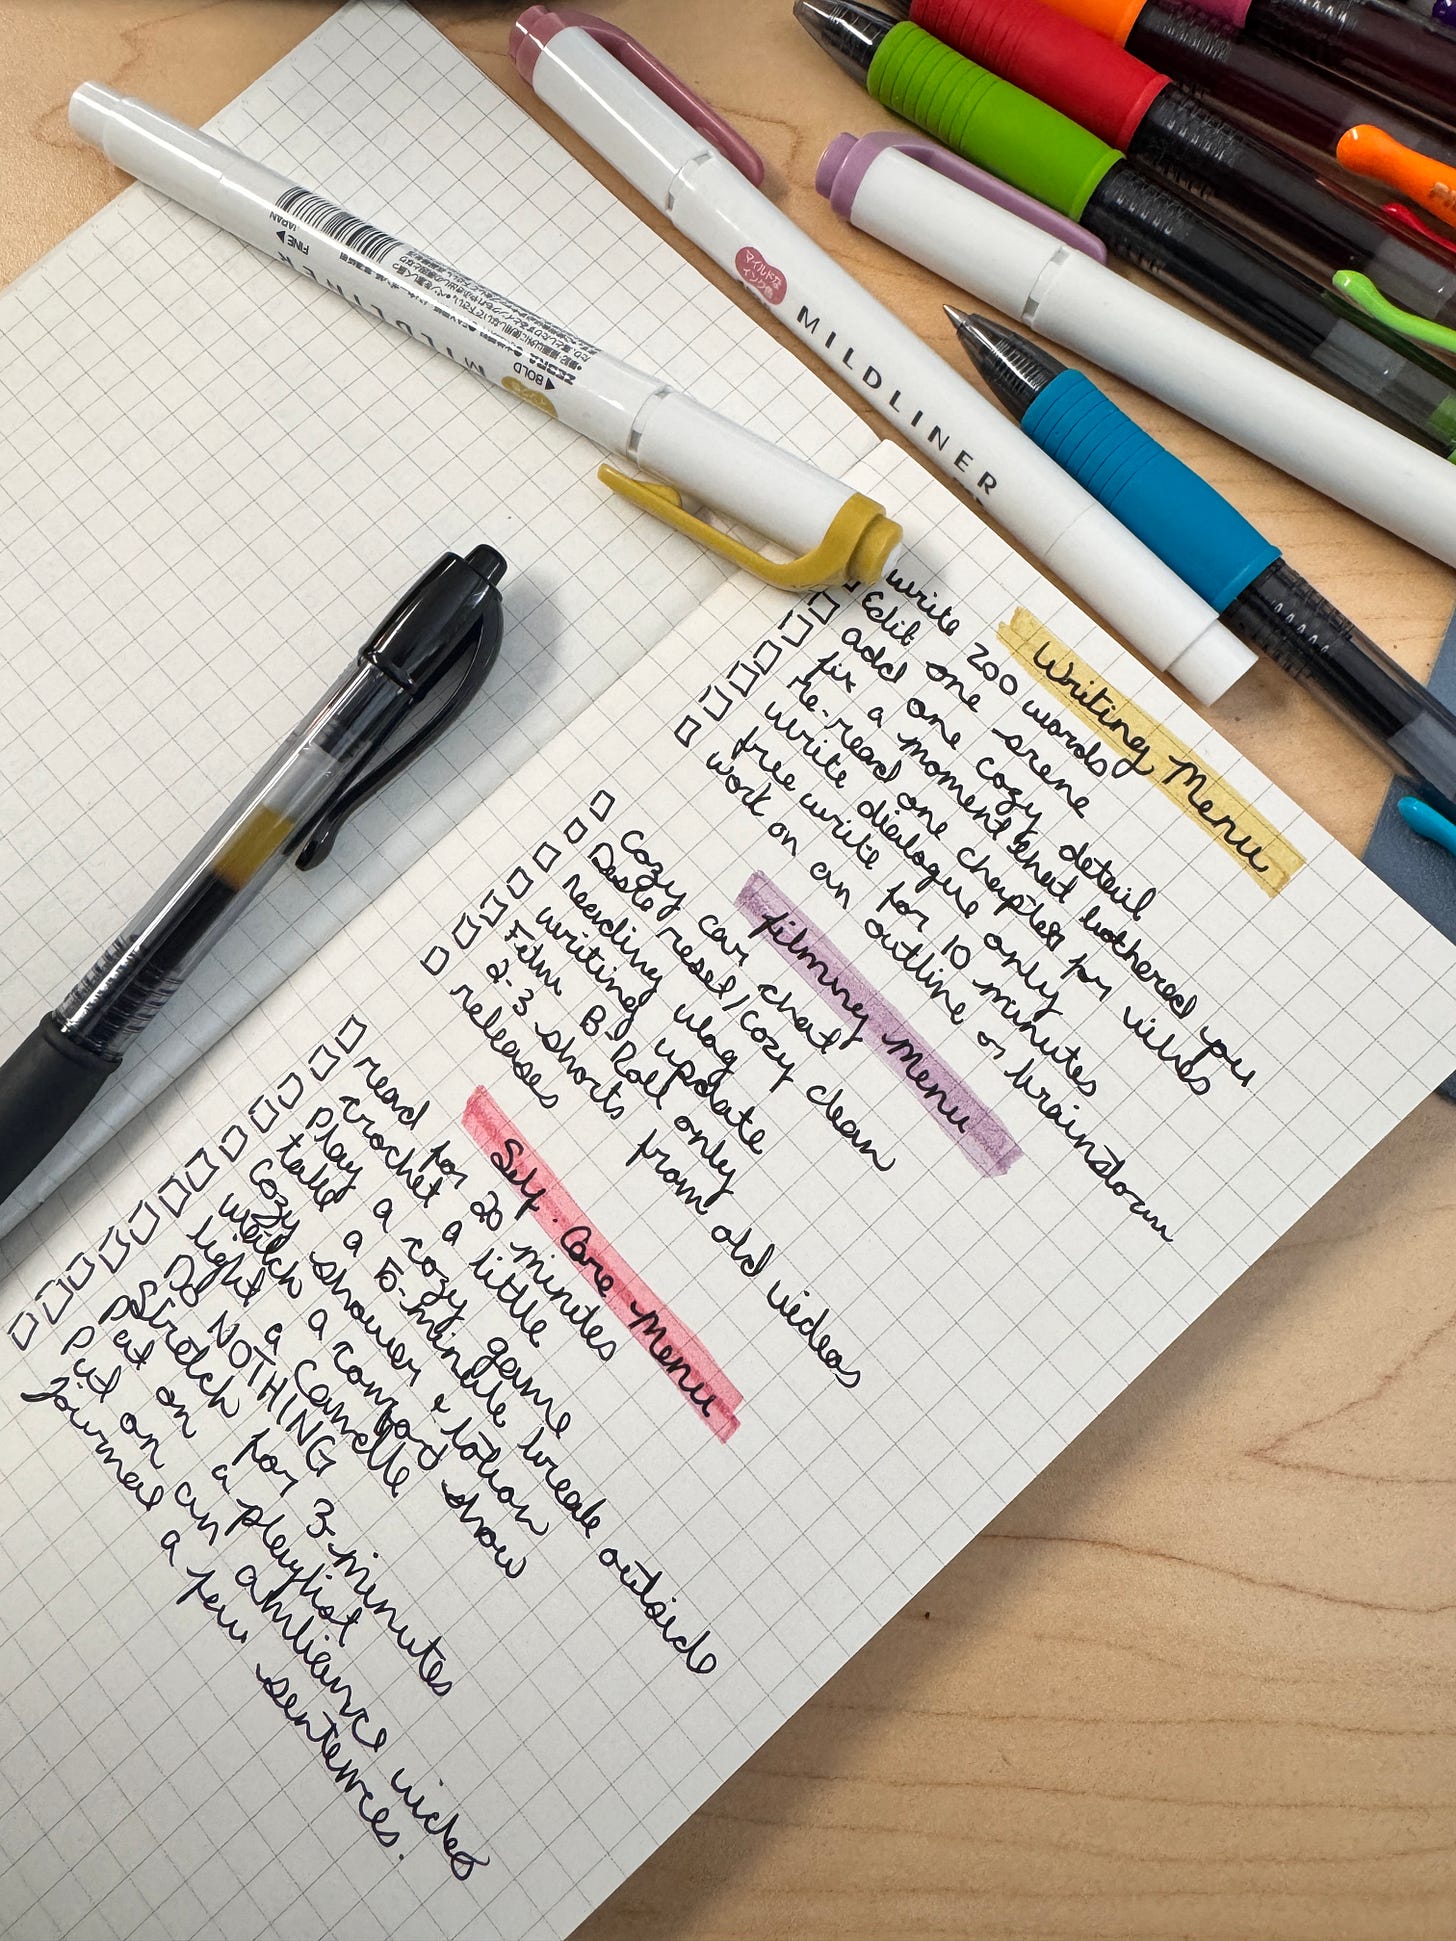 Writing Menu
write 200 words
Edit one scene
add one cozy detail
fix a moment that bothered you
re-read one chapter for vibes
write dialogue only
free write for 10 minutes
work on an outline or brainstorm
filming Menu
Cozy car chat
Desk reset/cozy clean
reading vlog
writing update
Film B-Roll only
2-3 shorts from old videos
releases
Self-Care Menu
read for 20 minutes
crochet a little
play a cozy game
take a 5-minute break outside
Cozy shower & lotion
watch a comfort show
light a candle
DO NOTHING
Stretch for 3-minutes
put on a playlist
put on an ambience video
Journal a few sentences.
MILDLINER
マイルドな
インク色
MILDLINER
ZEBRA
BOLD
FINE
JAPAN